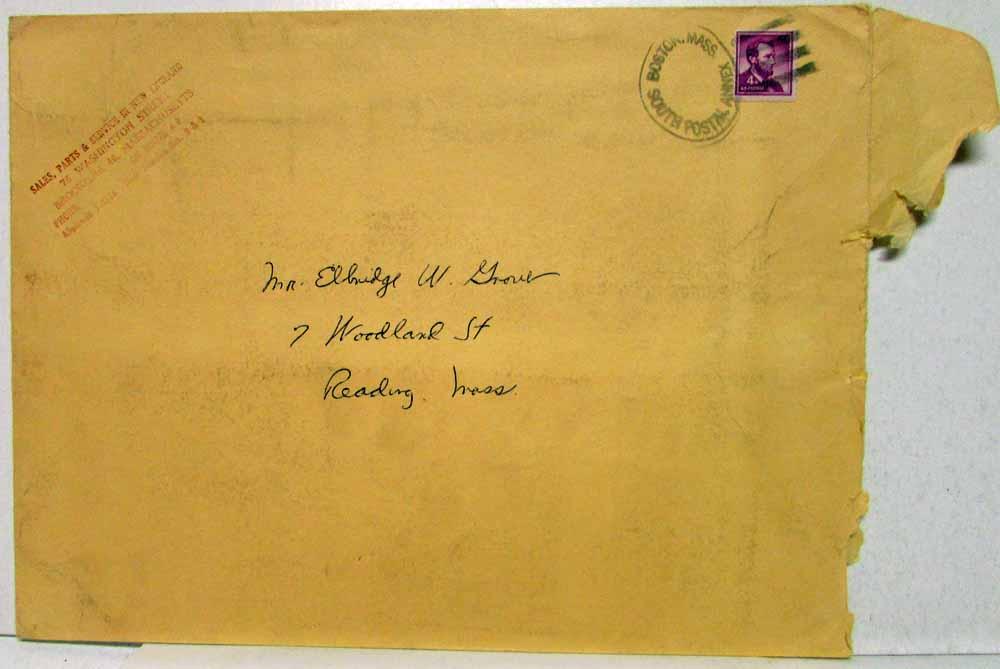 SALES, PARTS & SERVICE IN NEW ENGLAND
76 WASHINGTON STREET
BROOKLINE 46, MASSACHUSETTS
PHONE
BOSTON, MASS.
SOUTH POSTAL ANNEX
4¢
U.S. POSTAGE
Mr. Elbridge W. Grover
7 Woodland St
Reading. Mass.